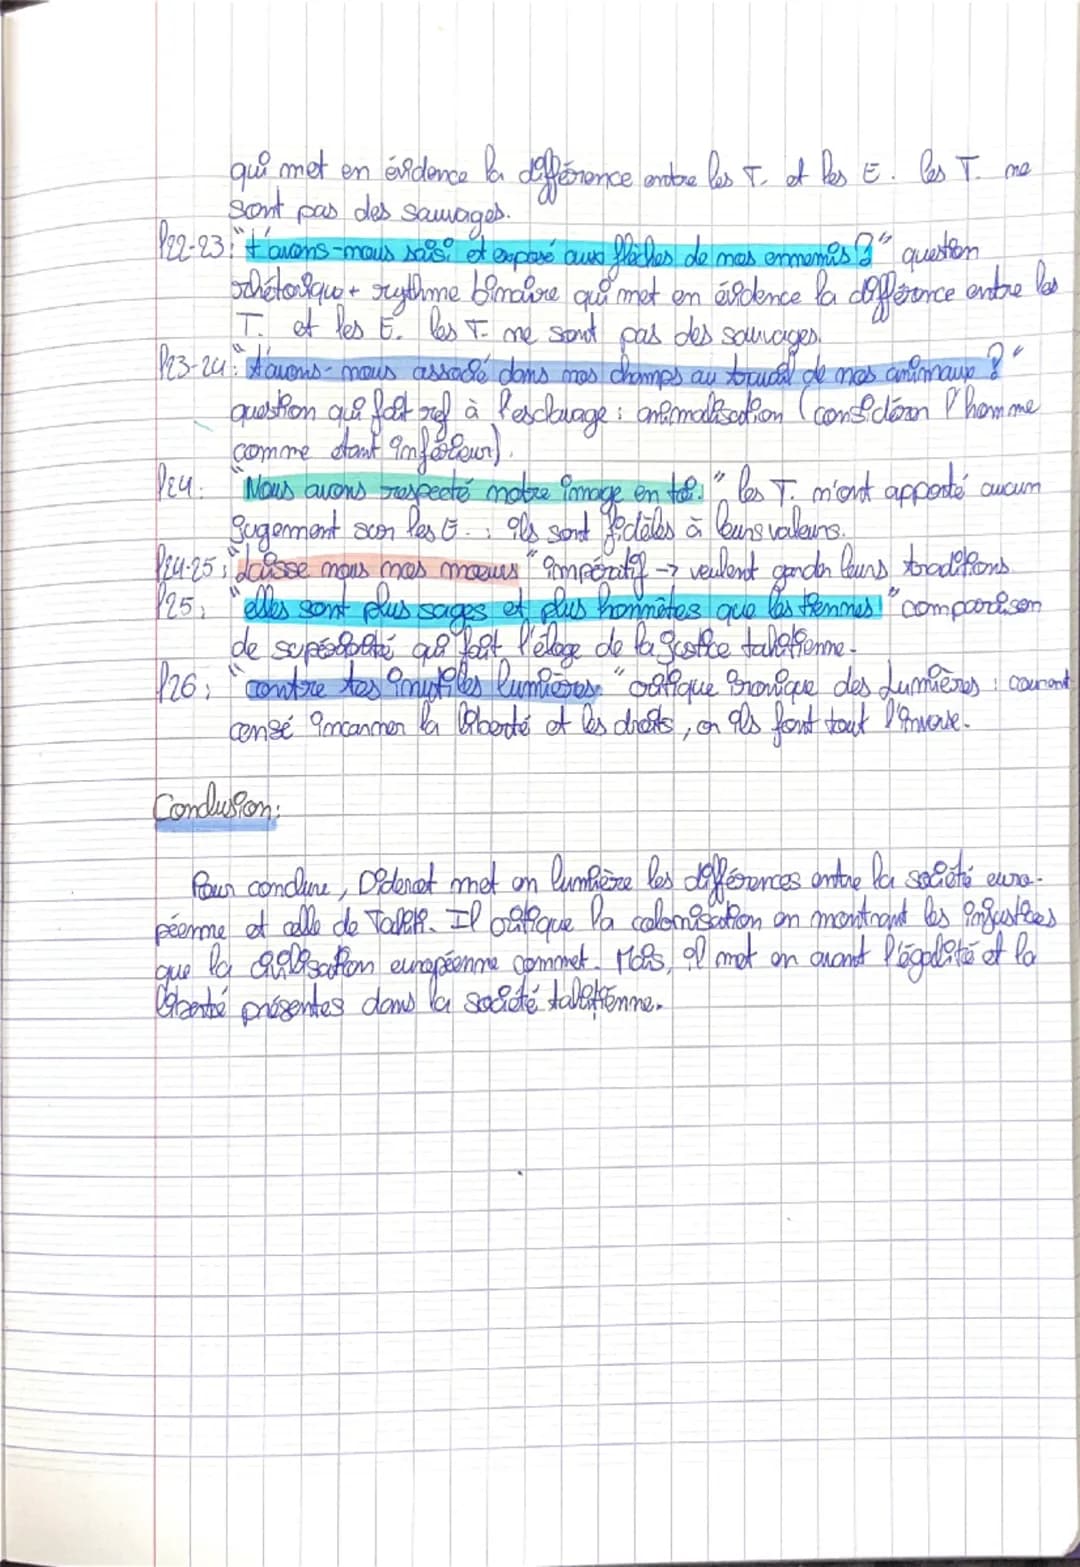 qui met en évidence la différence entre les T. et les E. les T. ne
sont pas des sauvages.
l22-23: "t'avons-nous saisi et exposé aux flèches de nos ennemis ?" question
rhétorique + rythme binaire qui met en évidence la différence entre les
T. et les E. les T. ne sont pas des sauvages.
l23-24: "t'avons-nous associé dans nos champs au travail de nos animaux ?"
question qui fait ref à l'esclavage : animalisation (considérer l'homme
comme étant inférieur).
l24: "Nous avons respecté notre image en toi." les T. n'ont apporté aucun
jugement sur les E. : ils sont fidèles à leurs valeurs.
l24-25: "Laisse nous nos moeurs" impératif -> veulent garder leurs traditions
l25: "elles sont plus sages et plus honnêtes que les tiennes!" comparaison
de supériorité qui fait l'éloge de la justice tahitienne.
l26: "contre tes inutiles lumières." critique ironique des Lumières : courant
censé incarner la liberté et les droits, or ils font tout l'inverse.
Conclusion:
Pour conclure, Diderot met en lumière les différences entre la société euro-
péenne et celle de Tahiti. Il critique la colonisation en montrant les injustices
que la civilisation européenne commet. Mais, il met en avant l'égalité et la
liberté présentes dans la société tahitienne.